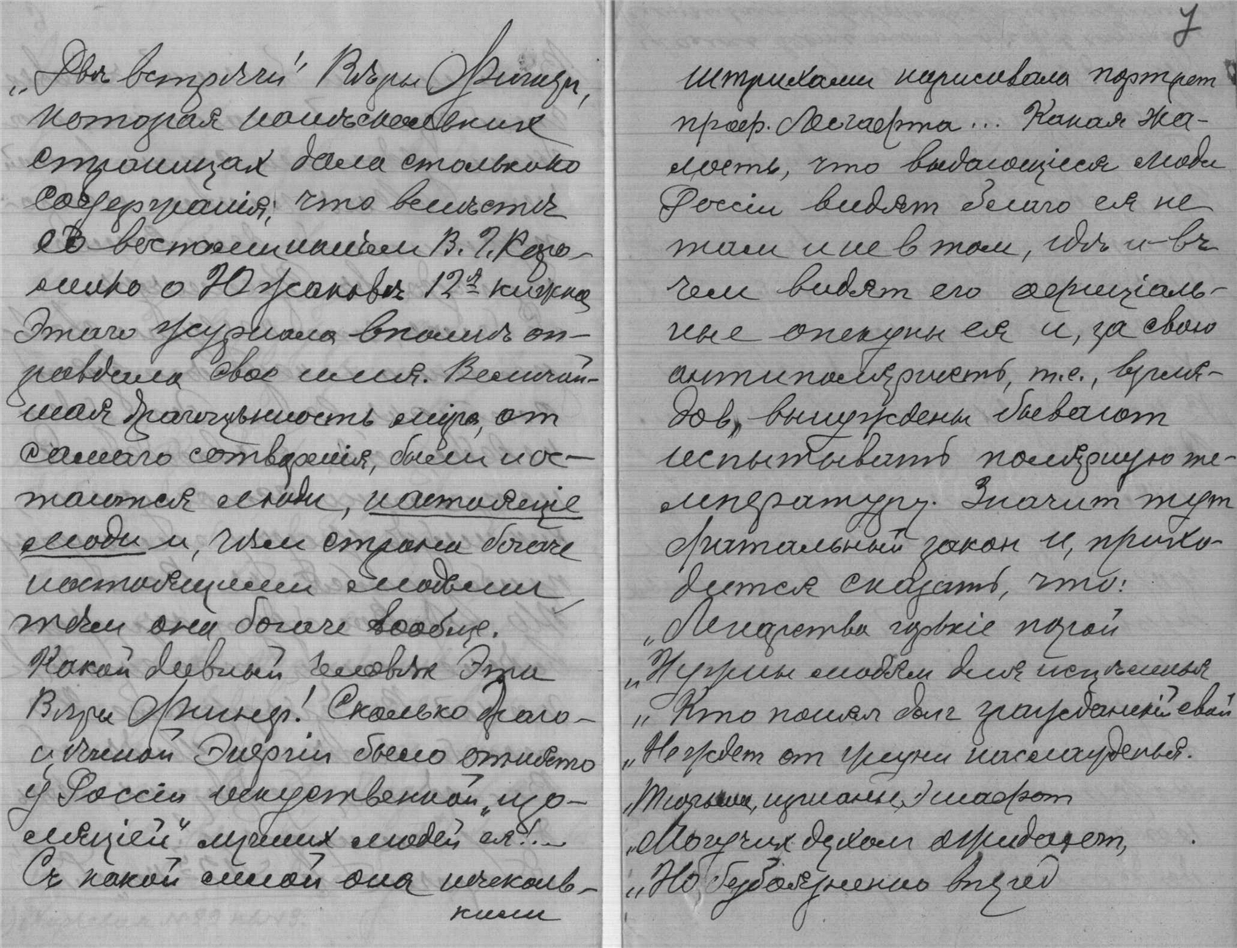 „Двѣ встрѣчи" Вѣры Фигнер,
которая на нѣскольких
страницах дала столько
содержанія, что вмѣстѣ
с воспоминаніем В. Г. Коро-
ленко о Южаковѣ 12я книжка
этого журнала вполнѣ оп-
равдала свое имя. Величай-
шая драгоцѣнность міра, от
самаго сотворенія, были и ос-
таются люди, настоящіе
люди и, чѣм страна богаче
настоящими людьми
тѣм она богаче вообще.
Какой дивный человѣк эта
Вѣра Фигнер! Сколько драго-
цѣнной энергіи было отнято
у Россіи искуственной „изо-
ляціей" лучших людей ея!..
Съ какой силой она нѣсколь-
кими
7
штрихами нарисовала портрет
проф. Лесгафта... Какая жа-
лость, что выдающіеся люди
Россіи видят благо ея не
там и не в том, гдѣ и въ
чем видят его офиціаль-
ные опекуны ея и, за свою
антиполярность, т.е., взгля-
дов, вынуждены бывают
испытывать полярную те-
мпературу. Значит тут
фатальный закон и, прихо-
дится сказать, что:
„Лекарства горькіе порой
„Нужны людям для исцѣленья
„Кто понял долг гражданскій свой
„Не ждет от жизни наслажденья.
„Тюрьма, изгнанье, эшафот
„Могучих духом ожидает,
„Но безбоязненно вперед